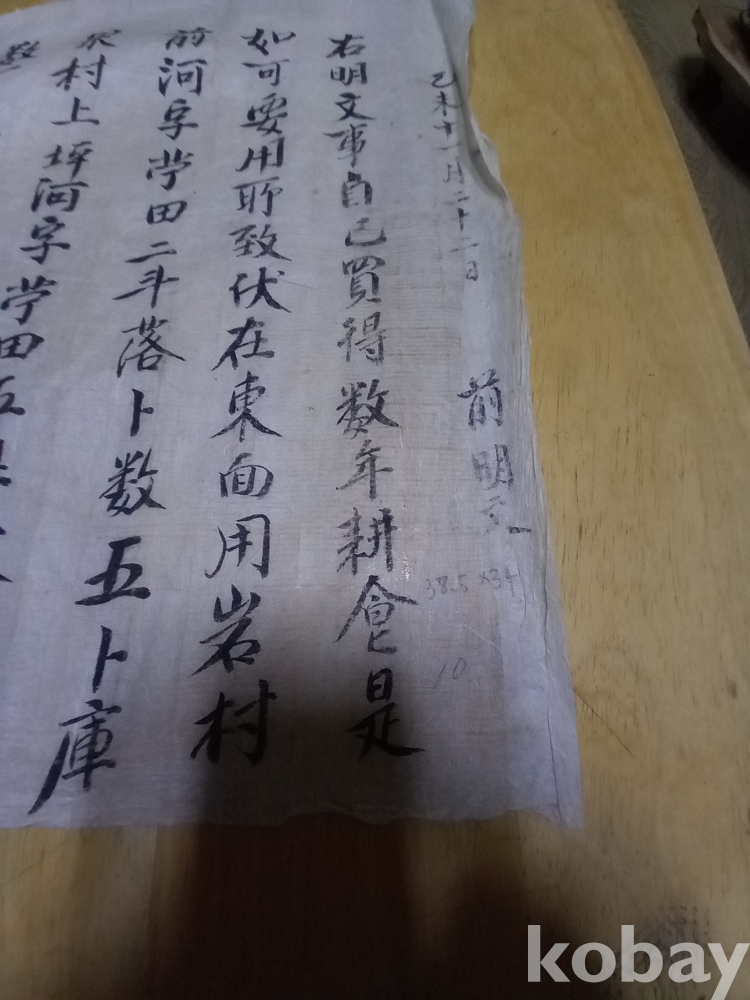 己未十一月二十二日
前明文
右明文事自己買得数年耕食是
如可要用所致伏在東面用岩村
前河字畓田二斗落卜数五卜庫
村上坪河字畓田五
38.5 x 34
10
kobay